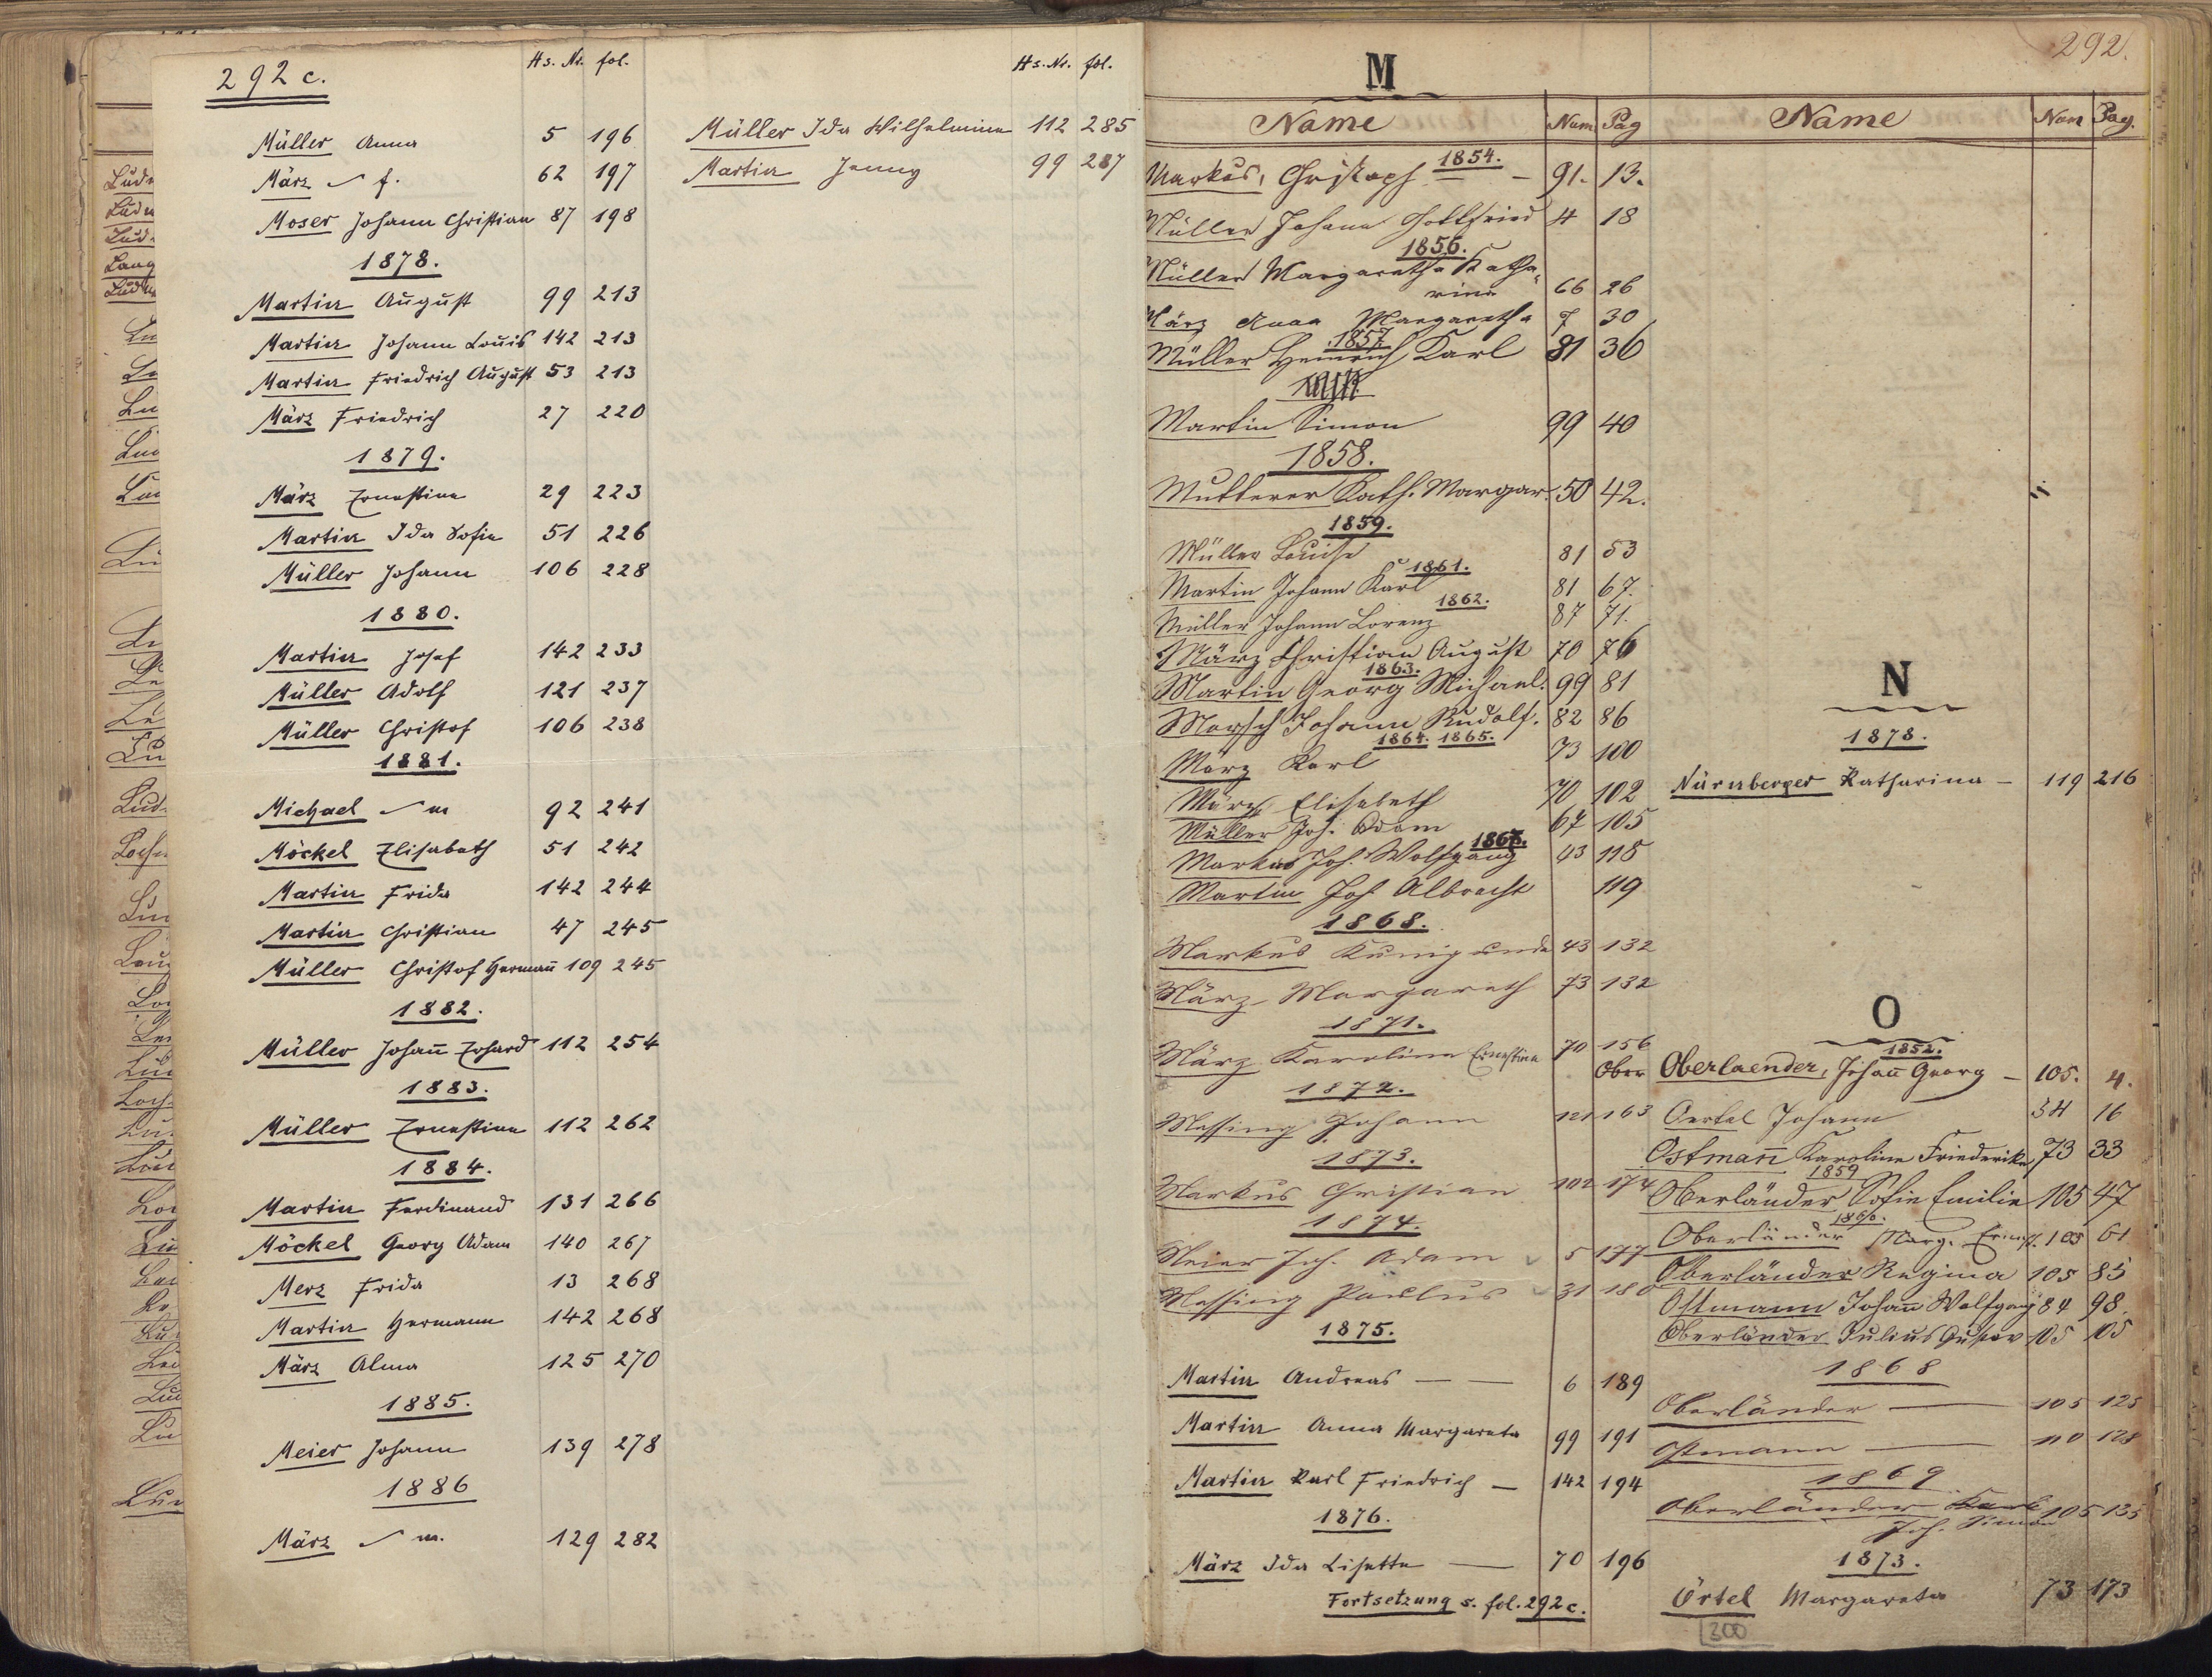 292 c.
Hs. Nr. fol.
Müller Anna 5 196
März f. 62 197
Moser Johann Christian 87 198
1878.
Martin August 99 213
Martin Johann Louis 142 213
Martin Friedrich August 53 213
März Friedrich 27 220
1879.
März Ernestine 29 223
Martin Ida Sofie 51 226
Müller Johann 106 228
1880.
Martin Josef 142 233
Müller Adolf 121 237
Müller Christof 106 238
1881.
Michael m 92 241
Möckel Elisabeth 51 242
Martin Frida 142 244
Martin Christian 47 245
Müller Christof Hermañ 109 245
1882.
Müller Johañ Erhard 112 254
1883.
Müller Ernestine 112 262
1884.
Martin Ferdinand 131 266
Möckel Georg Adam 140 267
Merz Frida 13 268
Martin Hermann 142 268
März Alma 125 270
1885.
Meier Johann 139 278
1886
März m. 129 282
Hs. Nr. fol.
Müller Ida Wilhelmine 112 285
Martin Jenny 99 287
292.
M
Name Num Pag
1854.
Markus, Christoph — – 91. 13.
Müller Johann Gottfried 4 18
1856.
Müller Margaretha Katha-
rina 66 26
März Anna Margaretha 7 30
1857.
Müller Heinrich Karl 81 36
Martin Simon 99 40
1858.
Mutterer Kath. Margar. 50 42.
1859.
Müller Louise 81 53
1861.
Martin Johann Karl 81 67.
1862.
Müller Johann Lorenz 87 71.
März Christian August 70 76
1863.
Martin Georg Michael. 99 81
Morsch Johann Rudolf. 82 86
1864. 1865.
März Karl 73 100
März Elisabeth 70 102
Müller Joh. Adam 67 105
1867.
Markus Joh. Wolfgang 43 118
Martin Joh Albrecht 119
1868.
Markus Kunigunde 43 132
März Margareth 73 132
1871.
März Karoline Ernestine 70 156
1872.
Messing Johann 121 163
1873.
Markus Christian 102 174
1874.
Meier Joh. Adam 5 177
Messing Paulus 31 180
1875.
Martin Andreas — — 6 189
Martin Anna Margareta 99 191
Martin Karl Friedrich – 142 194
1876.
März Ida Lisette — 70 196
Fortsetzung s. fol. 292 c.
Name Num Pag.
N
1878.
Nürnberger Katharina – 119 216
O
1852.
Ober Oberlaender, Johañ Georg – 105. 4.
Oertel Johann 54 16
Ostmañ Karoline Friederike 73 33
1859
Oberländer Sofie Emilie 105 47
1860.
Oberländer Marg. Ernest. 105 61
Oberländer Regina 105 85
Ostmann Johañ Wolfgang 84 98.
Oberländer Julius Gustav 105 105
1868
Oberländer — 105 125
Ostmann — 110 128
1869
Oberländer Karl 105 135
Joh. Simon
1873.
Örtel Margareta 73 173
300